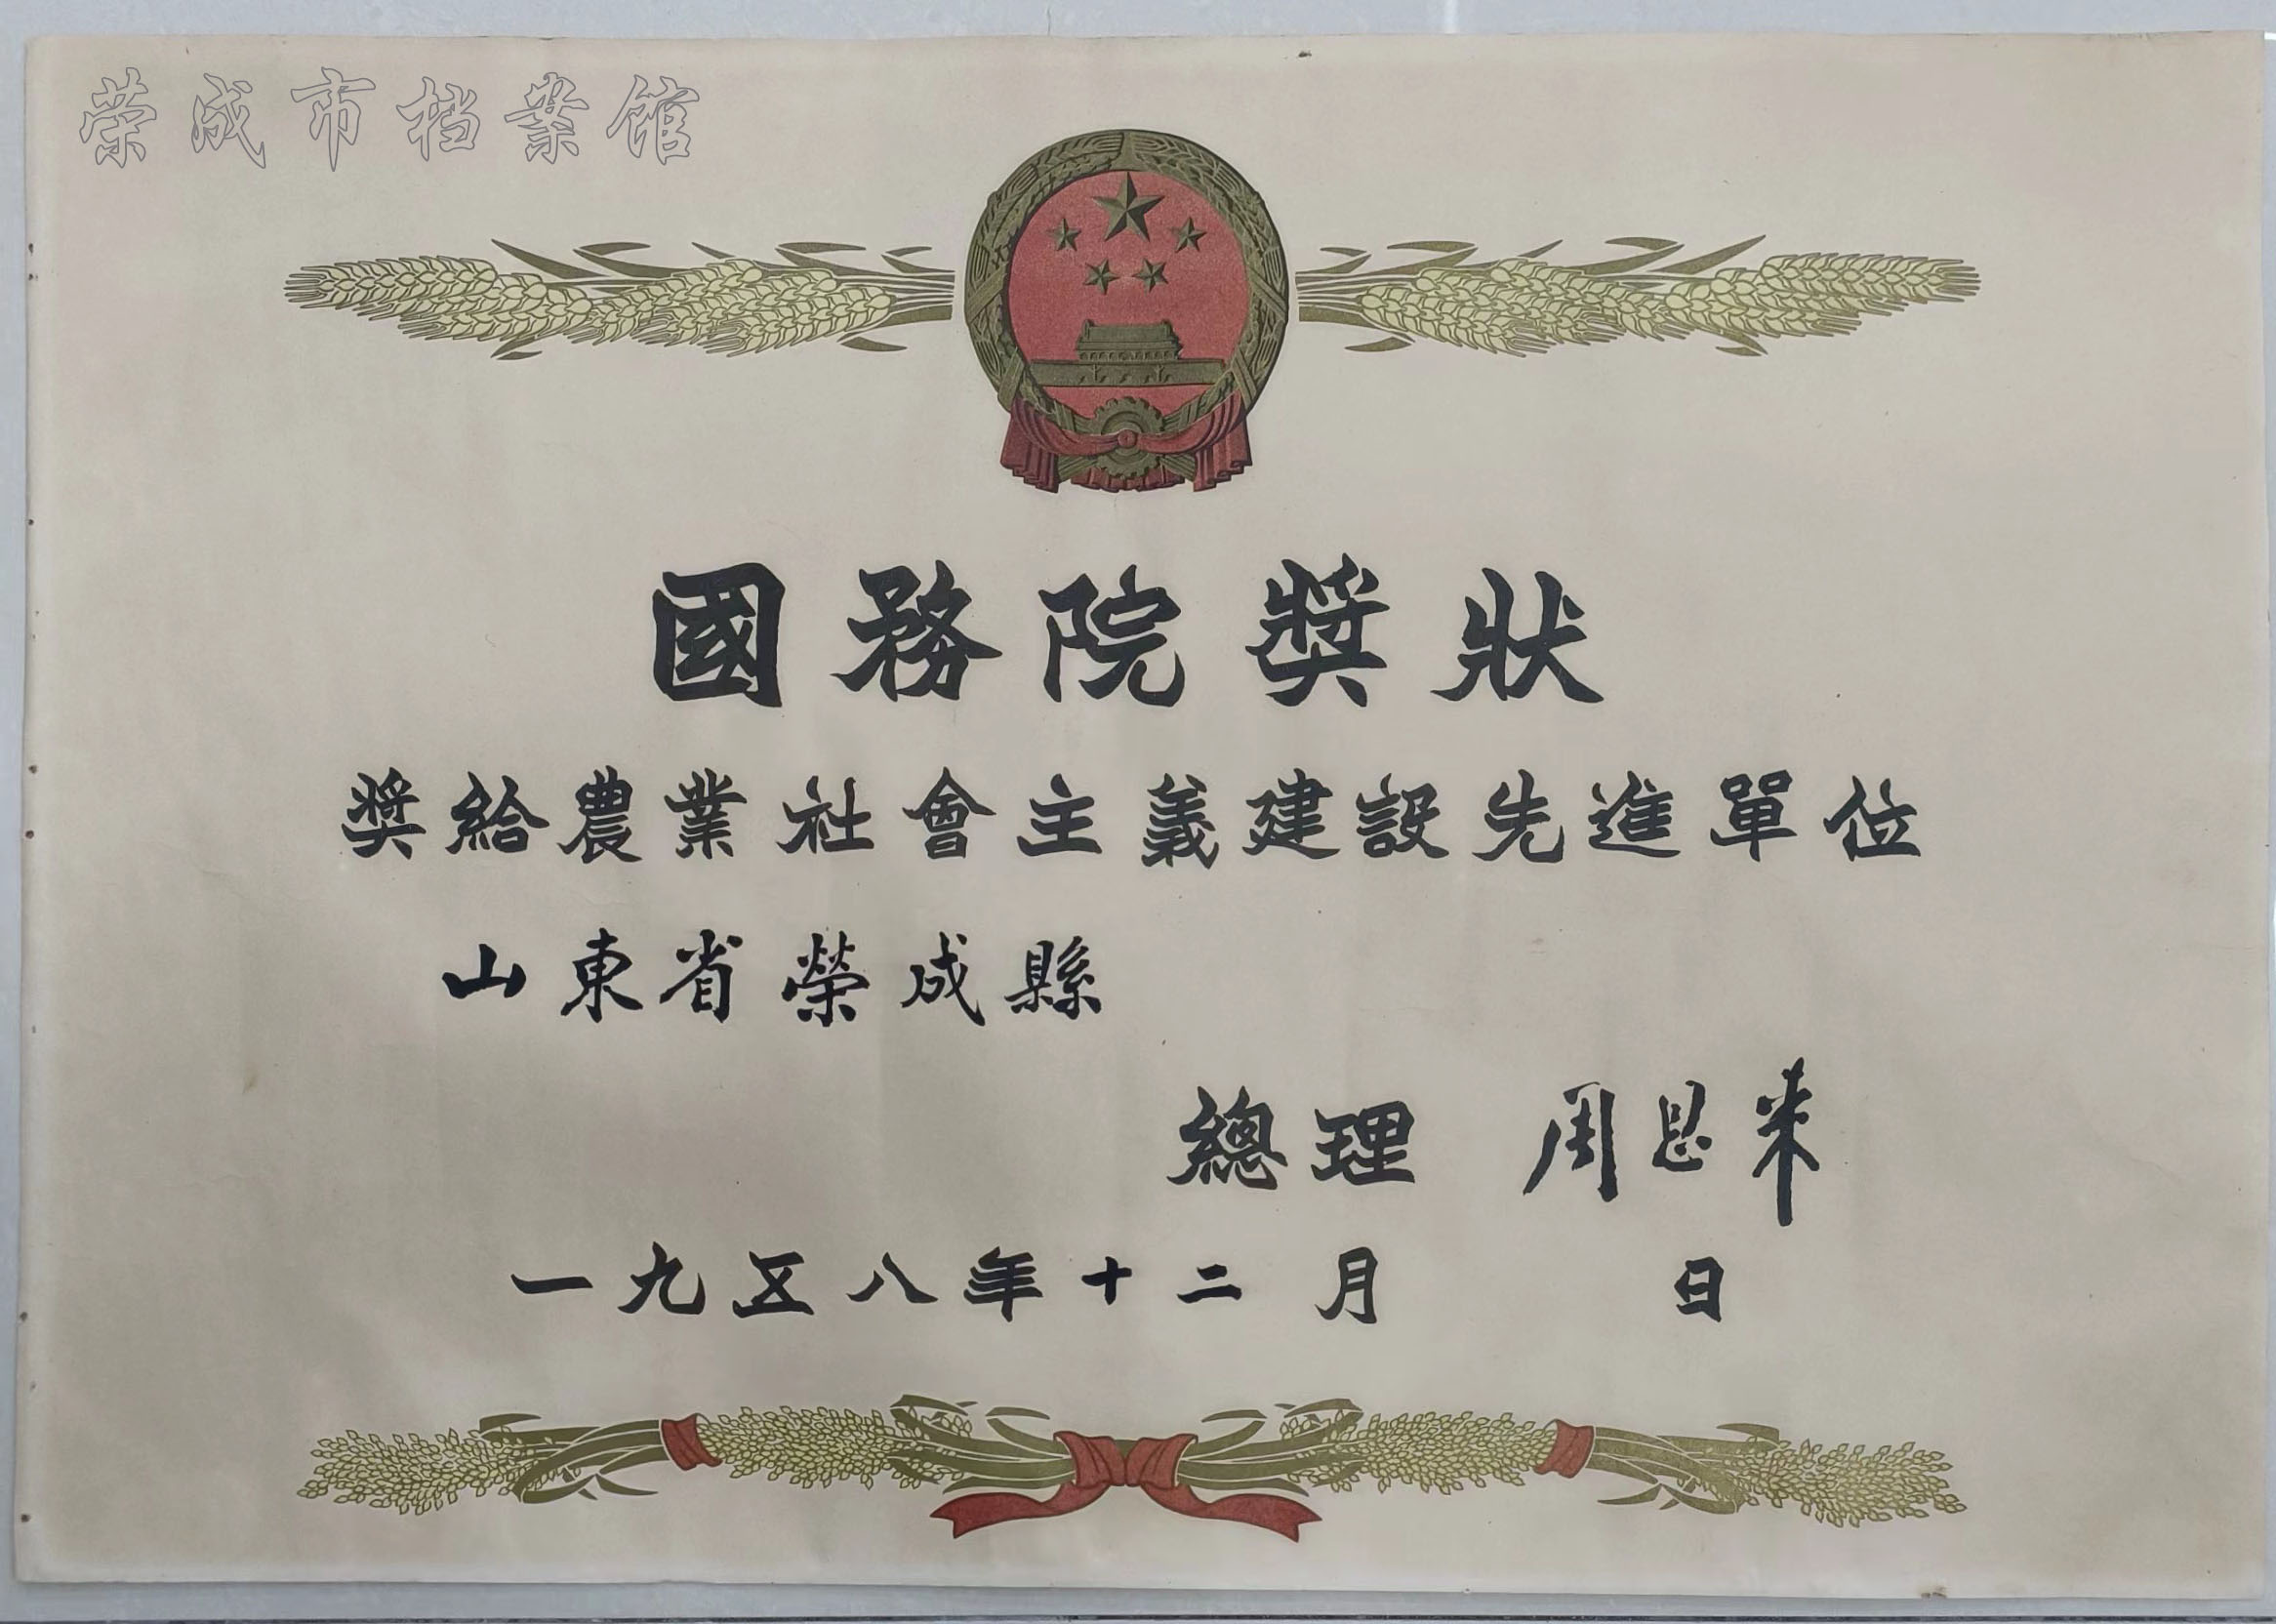 荣成市档案馆
國務院奬狀
奬給農業社會主義建設先進單位
山東省榮成縣
總理 周恩来
一九五八年十二月 日